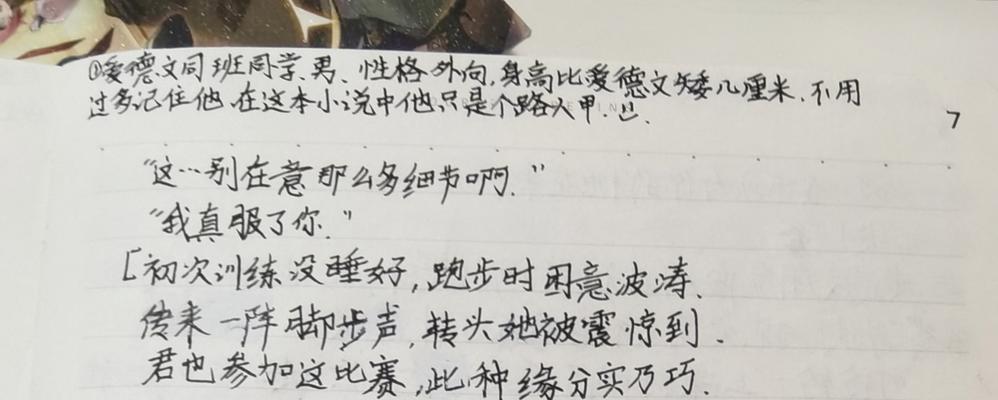 ①爱德文同班同学、男、性格外向,身高比爱德文矮几厘米、不用
过多记住他,在这本小说中他只是个路人甲.
7
“这…别在意那么多细节啊.”
“我真服了你.”
[初次训练没睡好,跑步时困意波涛、
传来一阵脚步声,转头她被震惊到.
君也参加这比赛,此种缘分实乃巧.